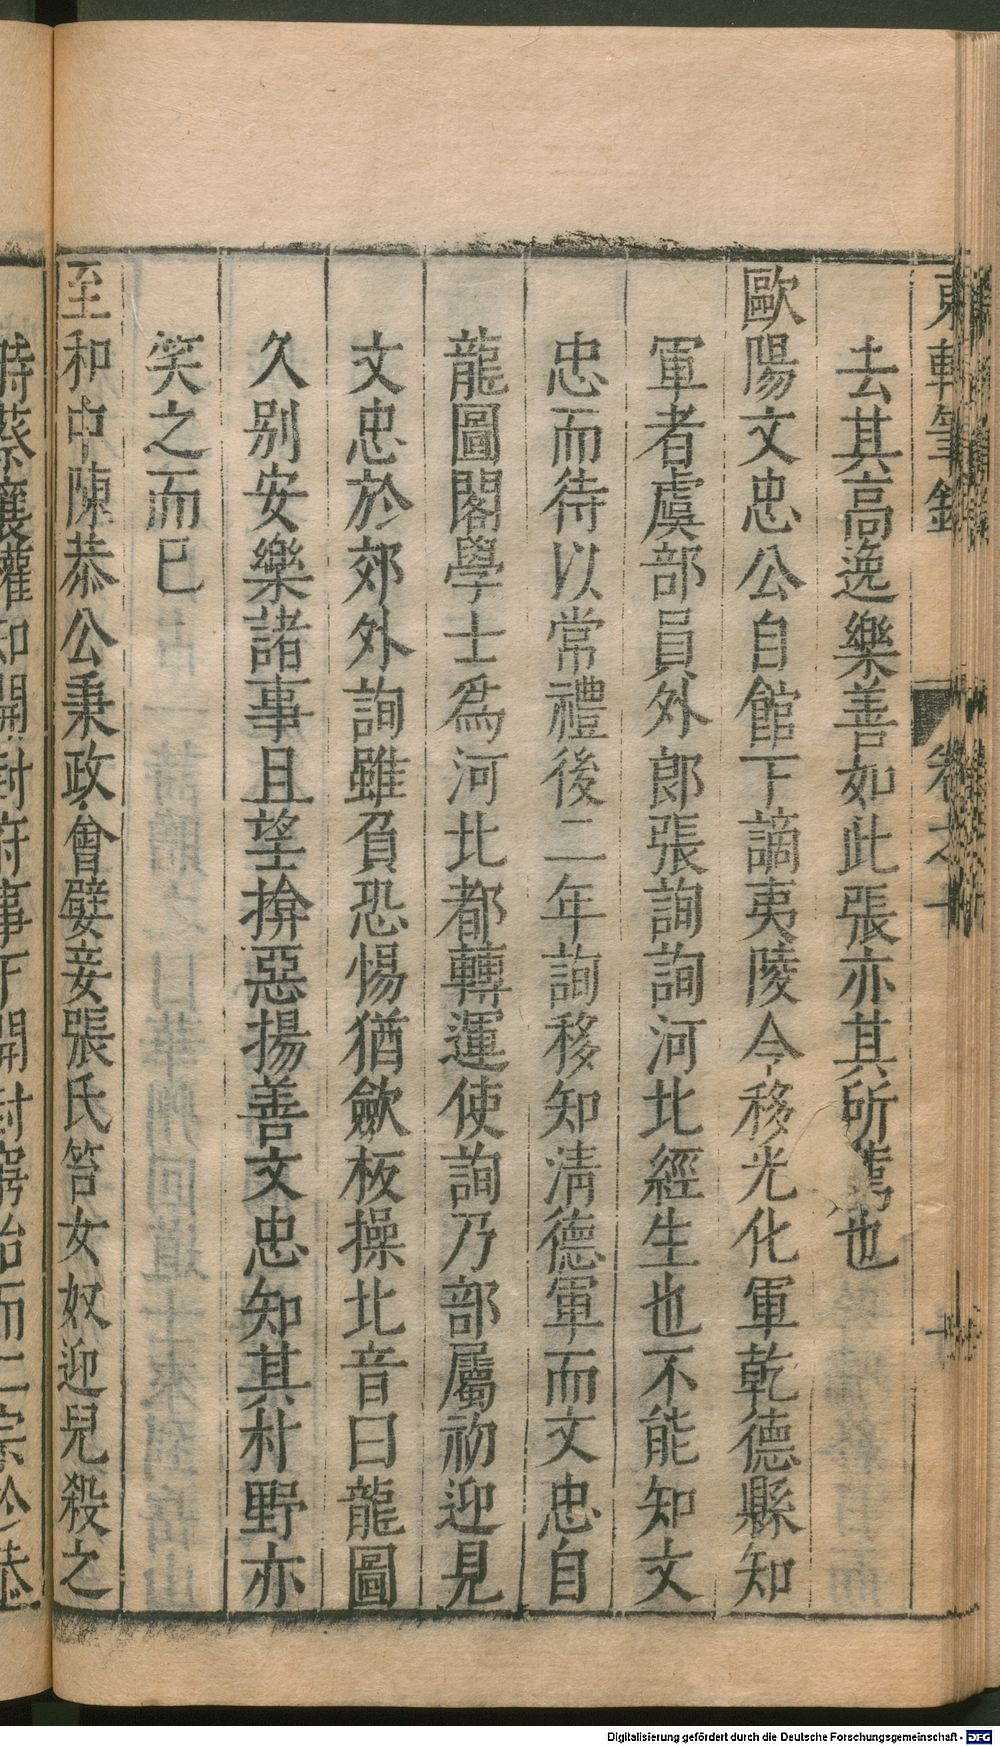 東軒筆錄
卷之十
十
去其高逸樂善如此張亦其所薦也
歐陽文忠公自館下謫夷陵令移光化軍乾德縣知
軍者虞部員外郎張詢詢河北經生也不能知文
忠而待以常禮後二年詢移知清德軍而文忠自
龍圖閣學士爲河北都轉運使詢乃部屬初迎見
文忠於郊外詢雖負恐惕猶歛板操北音曰龍圖
久别安樂諸事且望揜惡揚善文忠知其村野亦
笑之而已
至和中陳恭公秉政會嬖妾張氏笞女奴迎兒殺之
時蔡襄權知開封府事下開封窮治而仁宗於恭
Digitalisierung gefördert durch die Deutsche Forschungsgemeinschaft - DFG